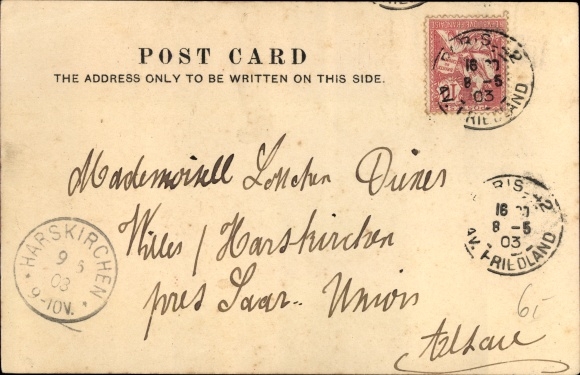 POST CARD
THE ADDRESS ONLY TO BE WRITTEN ON THIS SIDE.
PARIS-
16
8-5
03
AV. FRIEDLAND
Mademoisell Lottchen Dienes
Willer / Harskirchen
près Saar-Union
Alsace
PARIS-
16
8-5
03
AV. FRIEDLAND
HARSKIRCHEN
9 5
03
9-10V.